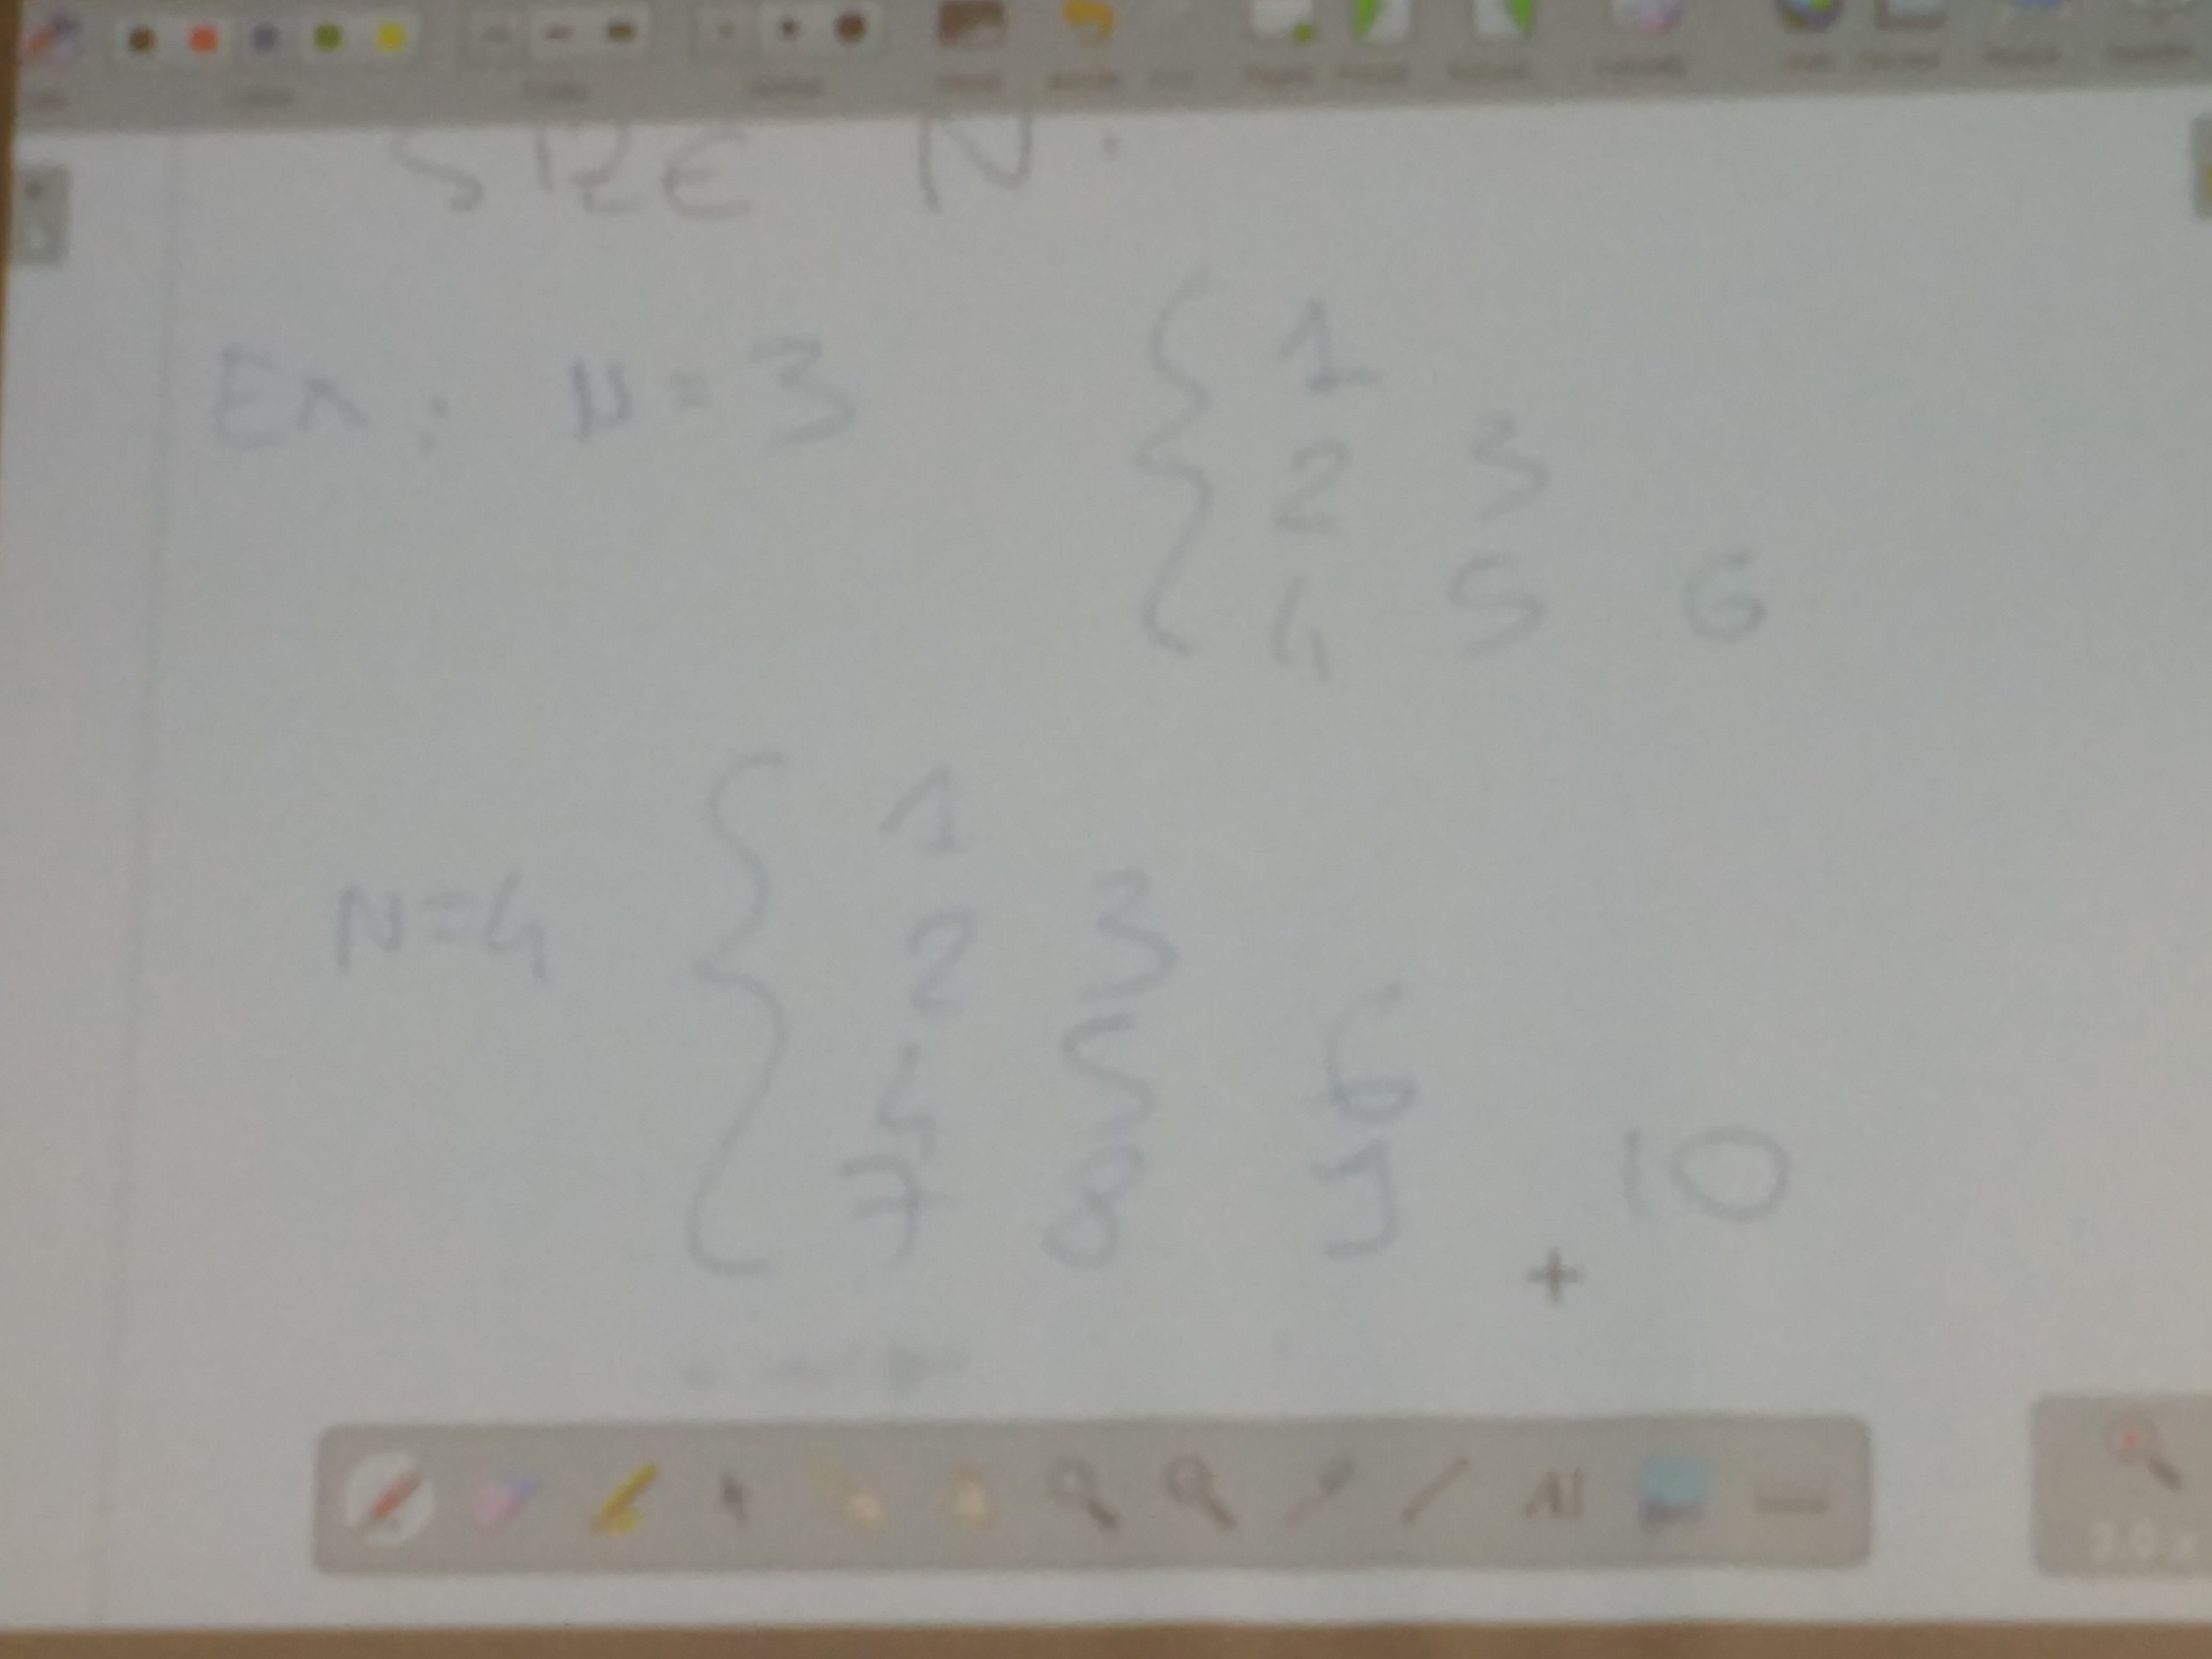 SIZE N.
Ex: N=3 { 1
2 3
4 5 6
N=4 { 1
2 3
4 5 6
7 8 9 10